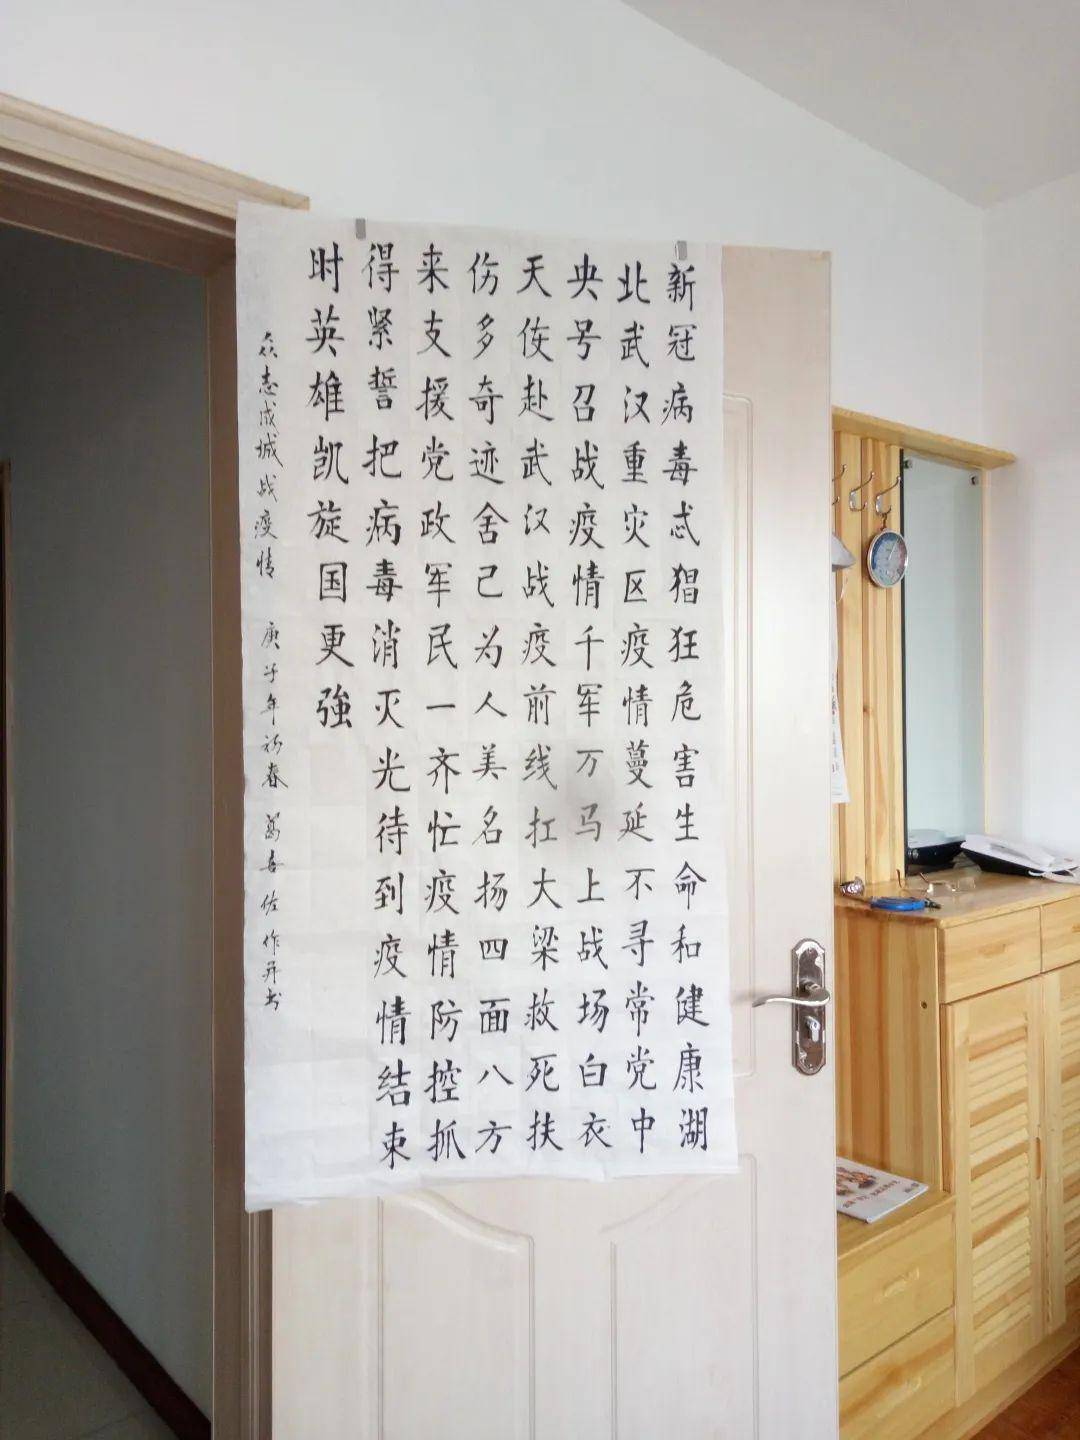 新冠病毒忒猖狂危害生命和健康湖
北武汉重灾区疫情蔓延不寻常党中
央号召战疫情千军万马上战场白衣
天使赴武汉战疫前线扛大梁救死扶
伤多奇迹舍己为人美名扬四面八方
来支援党政军民一齐忙疫情防控抓
得紧誓把病毒消灭光待到疫情结束
时英雄凯旋国更強
众志成城战疫情 庚子年初春 葛喜佐作并书